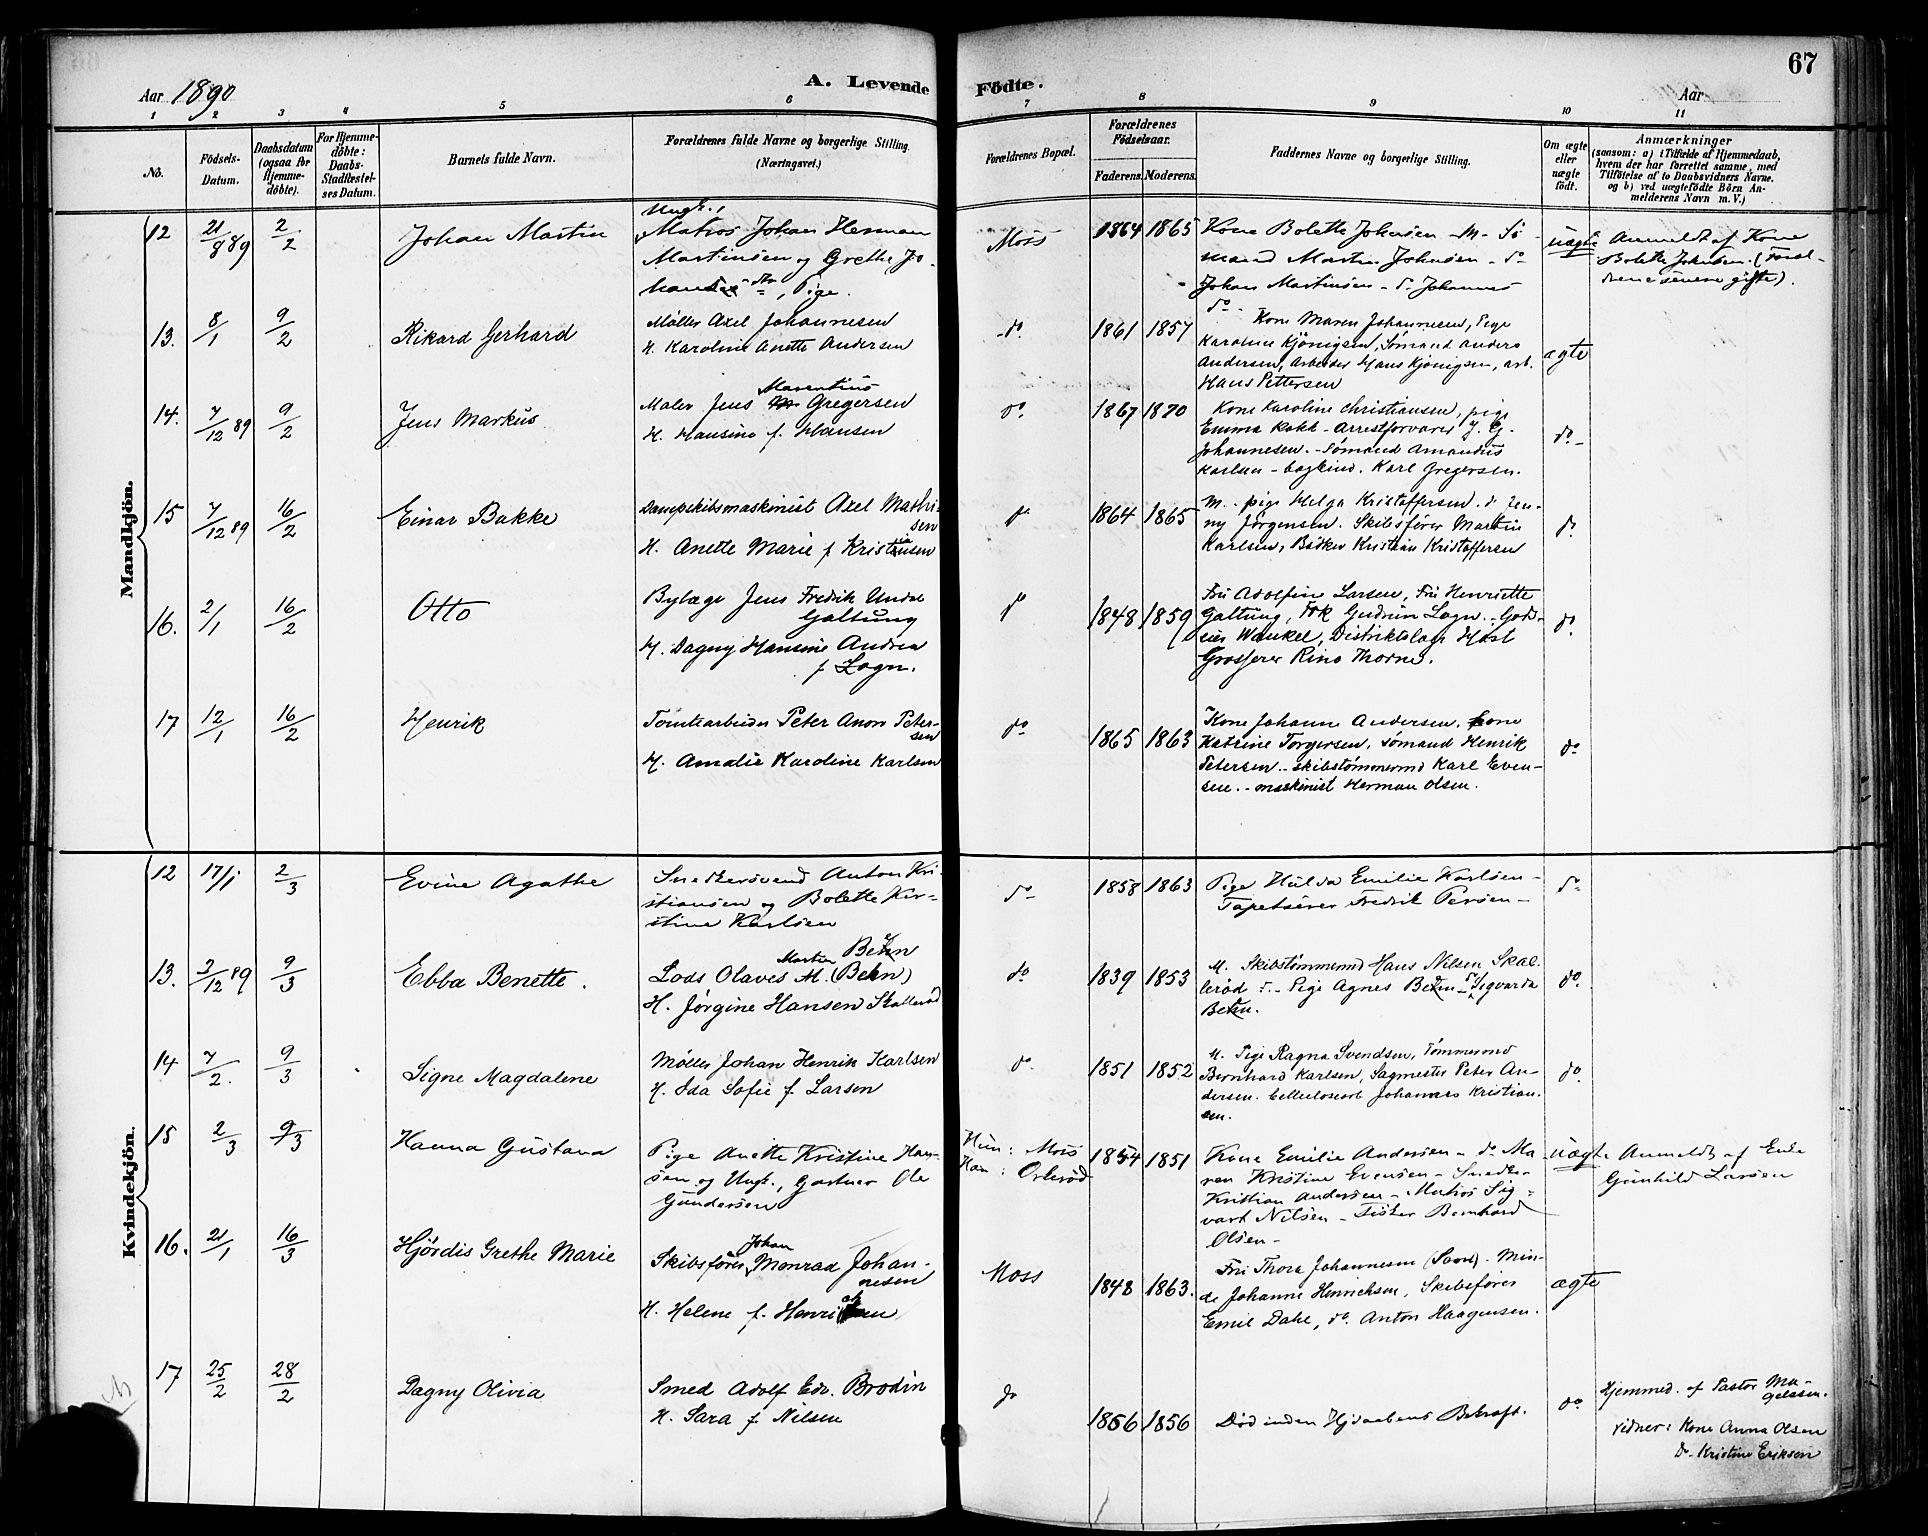 67
Aar 1890
A. Levende
Födte.
Aar
1 2 3 4 5 6 7 8 9 10 11
No.
Födsels-Datum.
Daabsdatum (ogsaa for Hjemme-döbte).
For Hjemme-döbte: Daabs-Stadfæstel-ses Datum.
Barnets fulde Navn.
Forældrenes fulde Navne og borgerlige Stilling.
(Næringsvei.)
Forældrenes Bopæl.
Forældrenes Födselsaar.
Faderens. Moderens.
Faddernes Navne og borgerlige Stilling.
Om ægte eller uægte födt.
Anmærkninger
(saasom: a) i Tilfælde af Hjemmedaab,
hvem der har forrettet samme, med
Tilföielse af to Daabsvidners Navne.
og b) ved uægtefödte Börn An-
melderens Navn m. V.)
Mandkjön.
12 21/8 89 2/2 Johan Martin
Ungk.,
Matros Johan Herman
Martinsen og Grethe Jo-
hansen, Pige.
Moss 1864 1865
Kone Bolette Johnsen - M - Sö-
mand Martin Johnsen - do
Johan Martinsen - d. Johannes
do
uægte
Anmeldt af Kone
Bolette Johnsen. (Foræl-
drene senere gifte).
13. 8/1 9/2 Rikard Gerhard
Møller Axel Johannesen
H. Karoline Anette Andersen
do. 1861 1857
Kone Maren Johannesen, Pige
Karoline Kjønigsen, Sømand Anders
Andersen, Arbeider Hans Kjønigsen, arb.
Hans Pettersen
ægte
14. 7/12 89 9/2 Jens Markus
Marentius
Maler Jens Gregersen
H. Hansine f. Hansen
do. 1867 1870
Kone Karoline Christiansen, pige
Emma Kokk - Arrestforvarer J. G.
Johannesen. - Sømand Amandus
Karlsen - bogbind. Karl Gregersen.
do -
15 7/12 89 16/2 Einar Bakke
Dampskibsmaskinist Axel Mathi-
sen
H. Anette Marie f Kristiansen
do 1864 1865
M. pige Helga Kristoffersen. d Jen-
ny Jørgensen. Skibsfører Martin
Karlsen, Bødker Kristian Kristoffersen
do.
16. 2/1 16/2 Otto
Bylæge Jens Fredrik Unda
Galtung
H. Dagny Hansine Andrea
f Logn.
do 1848 1859
Fru Adolfine Larsen, Fru Henriette
Galtung, Frk Gudrun Logn. - God-
eier Wankel, Distriktslæge Høst
Grosserer Rino Thorne.
do.
17 12/1 16/2 Henrik
Tomtearbeider Peter Anon Peter-
sen
H. Amalie Karoline Karlsen
do 1865 1863
Kone Johanne Andersen, Kone
Katrine Torgersen, sømand Henrik
Petersen - skibstømmermd Karl Even-
sen. - maskinist Herman Olsen.
do
Kvindekjön.
12 17/1 2/3 Evine Agathe
Snedkersvend Anton Kri-
stiansen og Bolette Kri-
stine Karlsen
do 1858 1863
Pige Hulda Emilie Karlsen -
Tapetserer Fredrik Persen -
do
13. 3/12 89 9/3 Ebba Benette.
Martin Behn
Lods Olaves M. (Behn)
H. Jørgine Hansen Skallerød
do 1839 1853
M. Skibstømmermd Hans Nilsen Skal-
lerød d. - Pige Agnes Behn - do Sigvarda
Behn.
do.
14 7/2. 9/3 Signe Magdalene
Møller Johan Henrik Karlsen
H. Ida Sofie f. Larsen
do. 1851 1852
M. Pige Ragna Svendsen, Tømmermd
Bernhard Karlsen, Sagmester Peter An-
dersen. Cellulosearb Johannes Kristian-
sen.
do.
15 2/3 9/3 Hanna Gustava
Pige Anette Kristine Han-
sen og Ungk., Gartner Ole
Gundersen
Hun: Moss
Han: Orkerød
1854 1851
Kone Emilie Andersen - do Ma-
ren Kristine Evensen - Snedker
Kristian Andersen - Matros Sig-
vart Nilsen - Fisker Bernhard
Olsen -
uægte
Anmeldt af Enke
Gunhild Larsen
16. 21/1 16/3 Hjørdis Grethe Marie
Johan
Skibsfører Monrad Johan-
nesen
H. Helene f. Henrichsen
Moss 1848 1863.
Fru Thora Johannesen (Soon). Min-
da Johanne Henrichsen, Skibsfører
Emil Dahl, do. Anton Haagensen.
ægte
17 25/2 28/2 Dagny Olivia
Smed Adolf Edv. Brodin
H. Sara f Nilsen
do 1856 1856
Död inden Hjdaabens Bekræft.
do
Hjemmed. af Pastor Ma-
gelssen.
vidner: Kone Anna Olsen
Do Kristine Eriksen